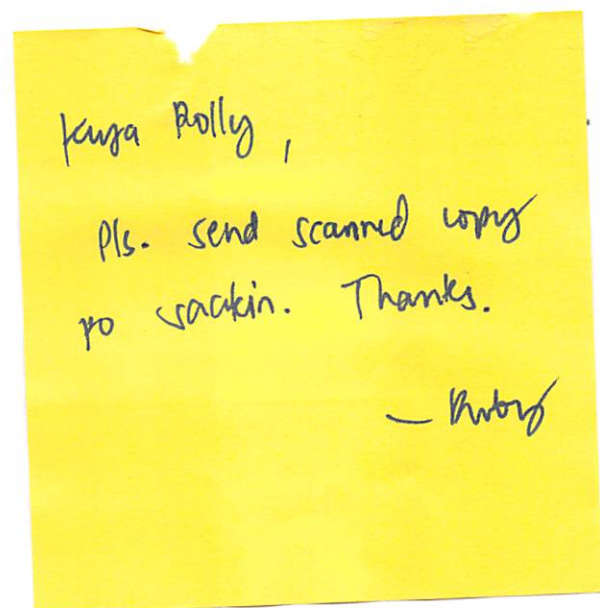 Kuya Rolly,
Pls. send scanned copy
to sackin. Thanks.
— Ruby